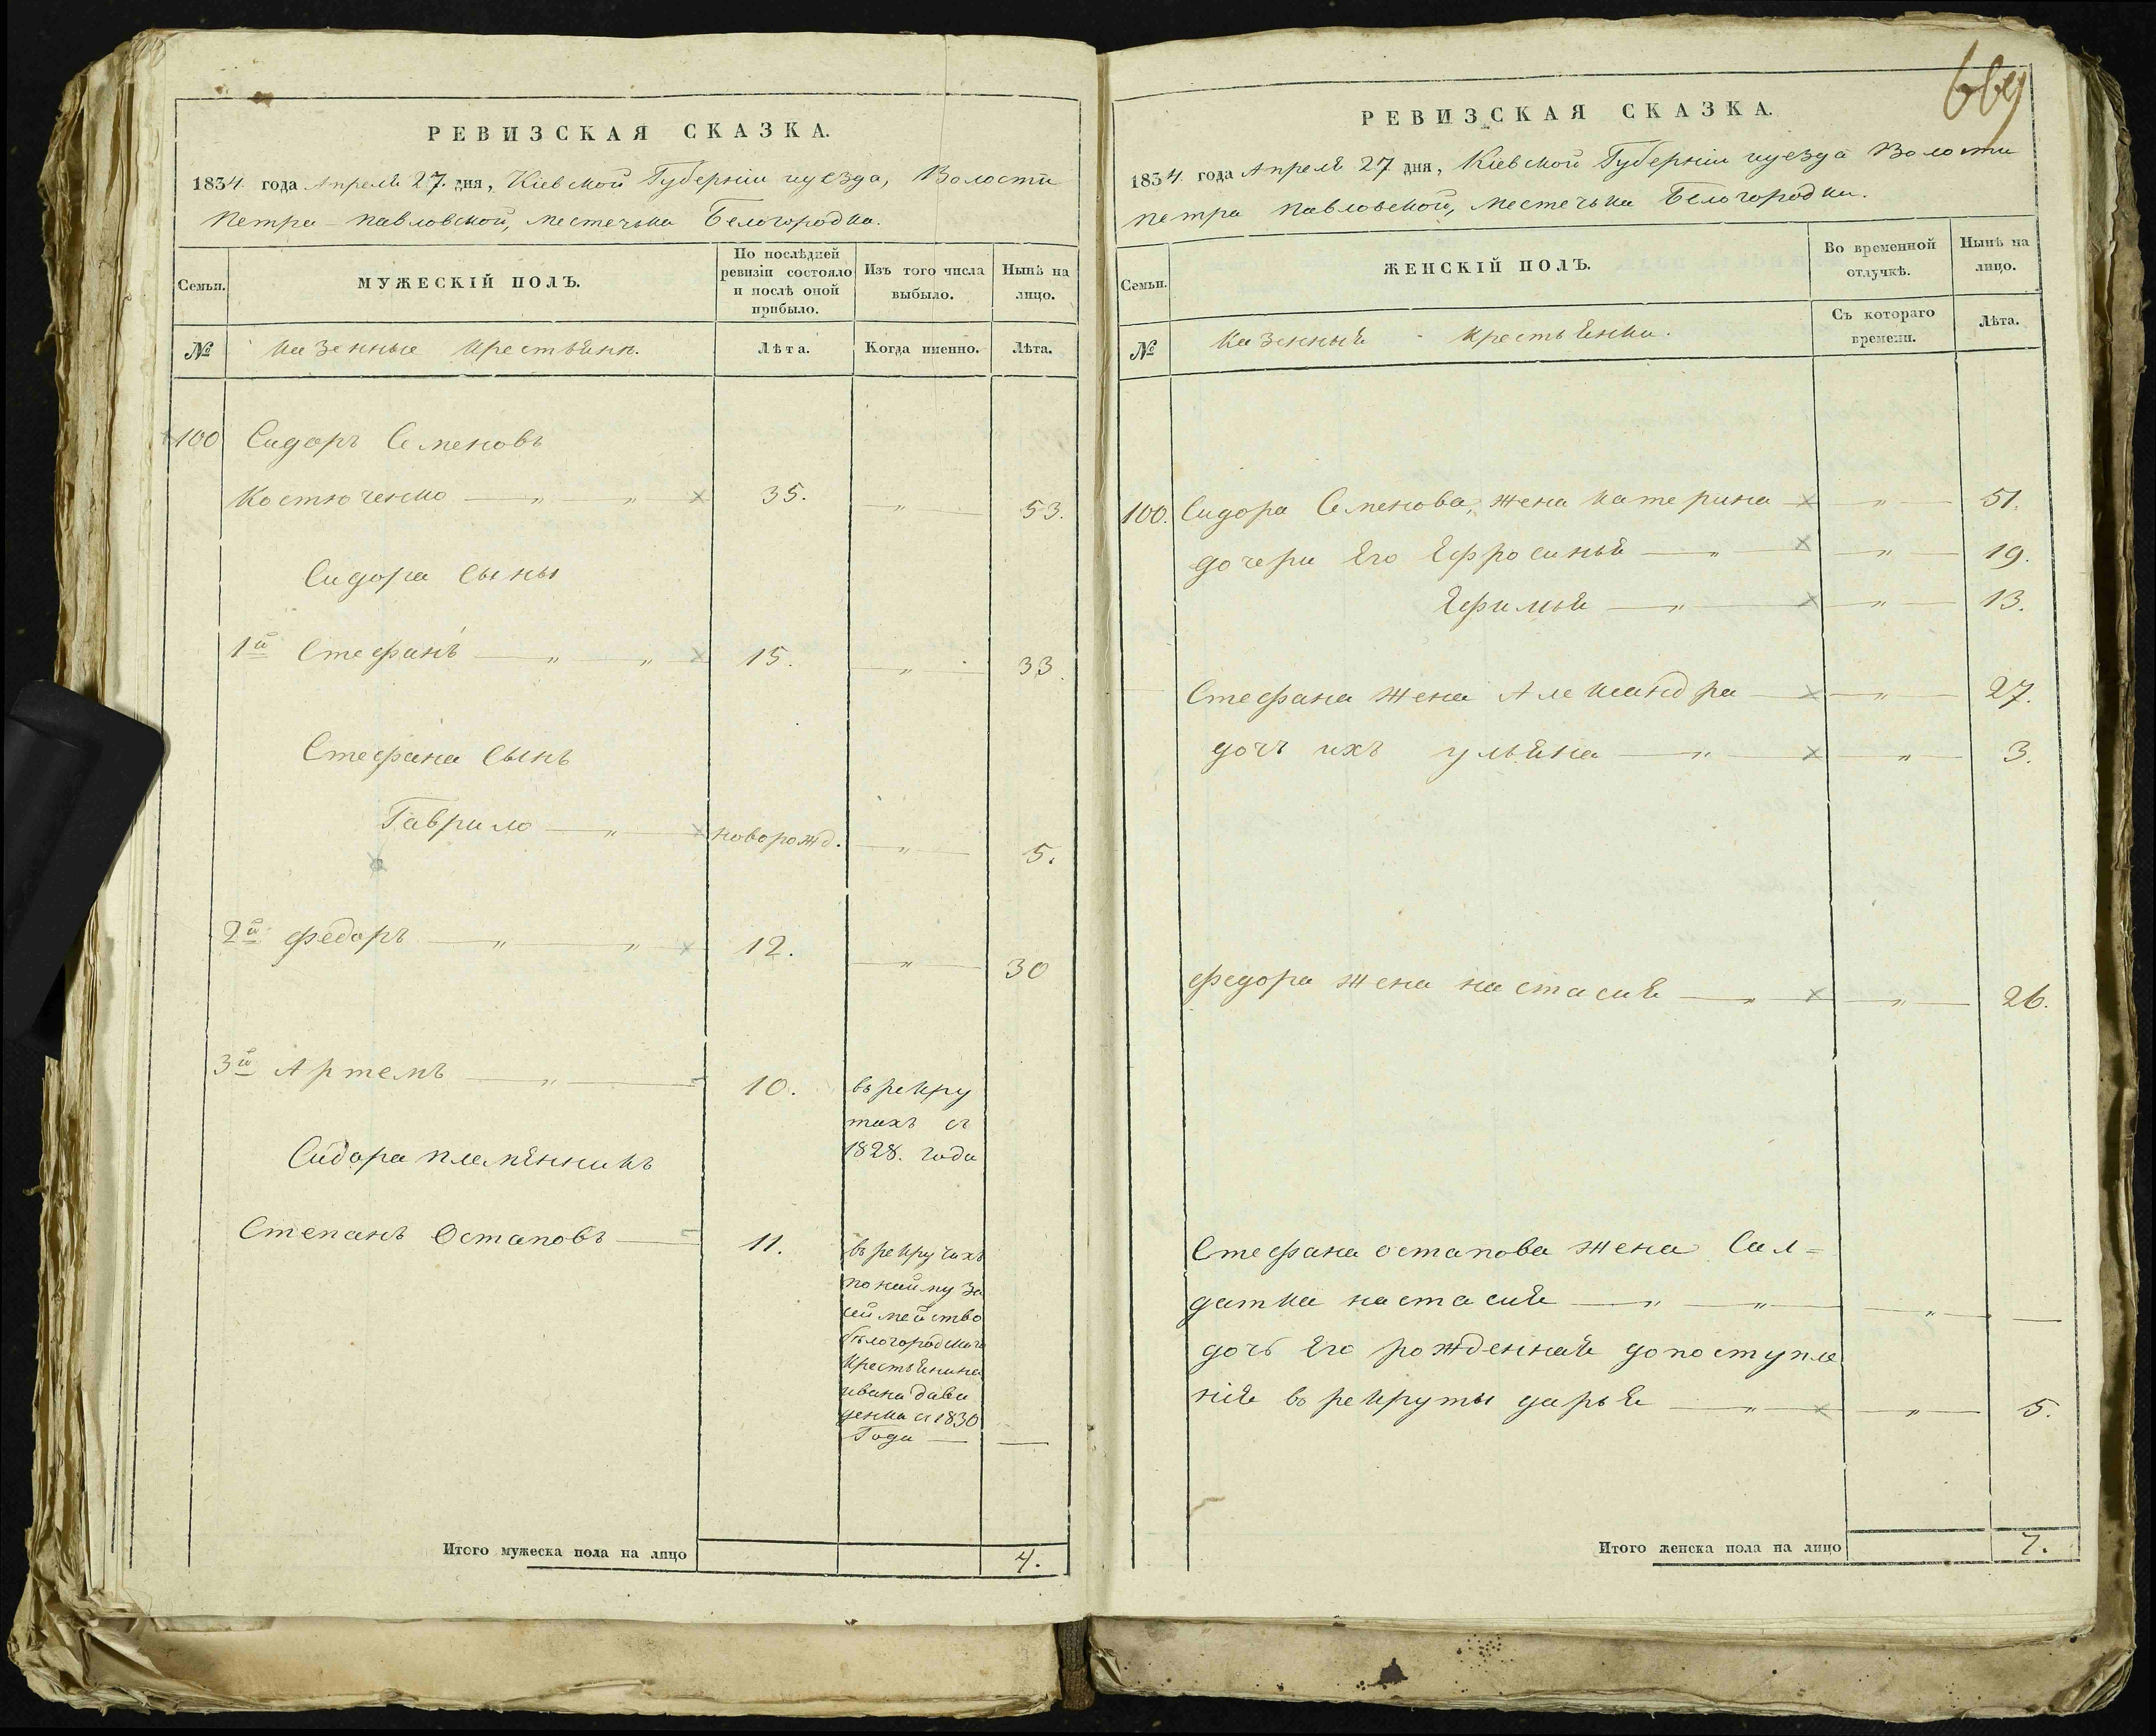 РЕВИЗСКАЯ СКАЗКА.
1834. года Апреля 27. дня, Кіевской Губерніи иуезда, Волости
Петра-павловской, местечька Белогородка.
Семьи.
МУЖЕСКІЙ ПОЛЪ.
По послѣдней ревизіи состояло и послѣ оной прибыло.
Изъ того числа выбыло.
Нынѣ на лицо.
№
казенные крестьянн.
Лѣта.
Когда именно.
Лѣта.
100 Сидоръ Семеновъ
Костюченко — „ — „ × 35. — „ — 53.
Сидора сыны
1й Стефанъ — „ — „ × 15. — „ — 33.
Стефана сынъ
Гаврило — „ — × новорожд. — „ — 5.
2й федоръ — „ — „ × 12. — „ — 30
3й Артемъ — „ — 10. въ рекру
тахъ съ
1828. года
Сидора племянникъ
Степанъ Остаповъ — 11. въ рекрутахъ
по найму за
сймейство
белогородского
крестьянина
ивана дави
денка съ 1830
Года — —
Итого мужеска пола на лицо 4.
669
РЕВИЗСКАЯ СКАЗКА.
1834. года Апреля 27 дня, Кіевской Губерніи иуезда Волости
петра павловской, местечька Белогородки.
Семьи.
ЖЕНСКІЙ ПОЛЪ.
Во временной отлучкѣ.
Нынѣ на лицо.
№
казенныя крестьянки.
Съ котораго времени.
Лѣта.
100. Сидора Семенова, жена катерина × — „ — 51.
дочери Его Ефросинья — „ — × — „ — 19.
Ефимья — „ — × — „ — 13.
Стефана жена Александра — × — „ — 27.
дочъ ихъ ульяна — „ — × — „ — 3.
федора жена настасия — „ × — „ — 26.
Стефана остапова жена Сал=
датка настасия — „ — „ — — „ — —
дочъ Его рожденная допоступле
ния въ рекруты дарья — „ — × — „ — 5.
Итого женска пола на лицо 7.